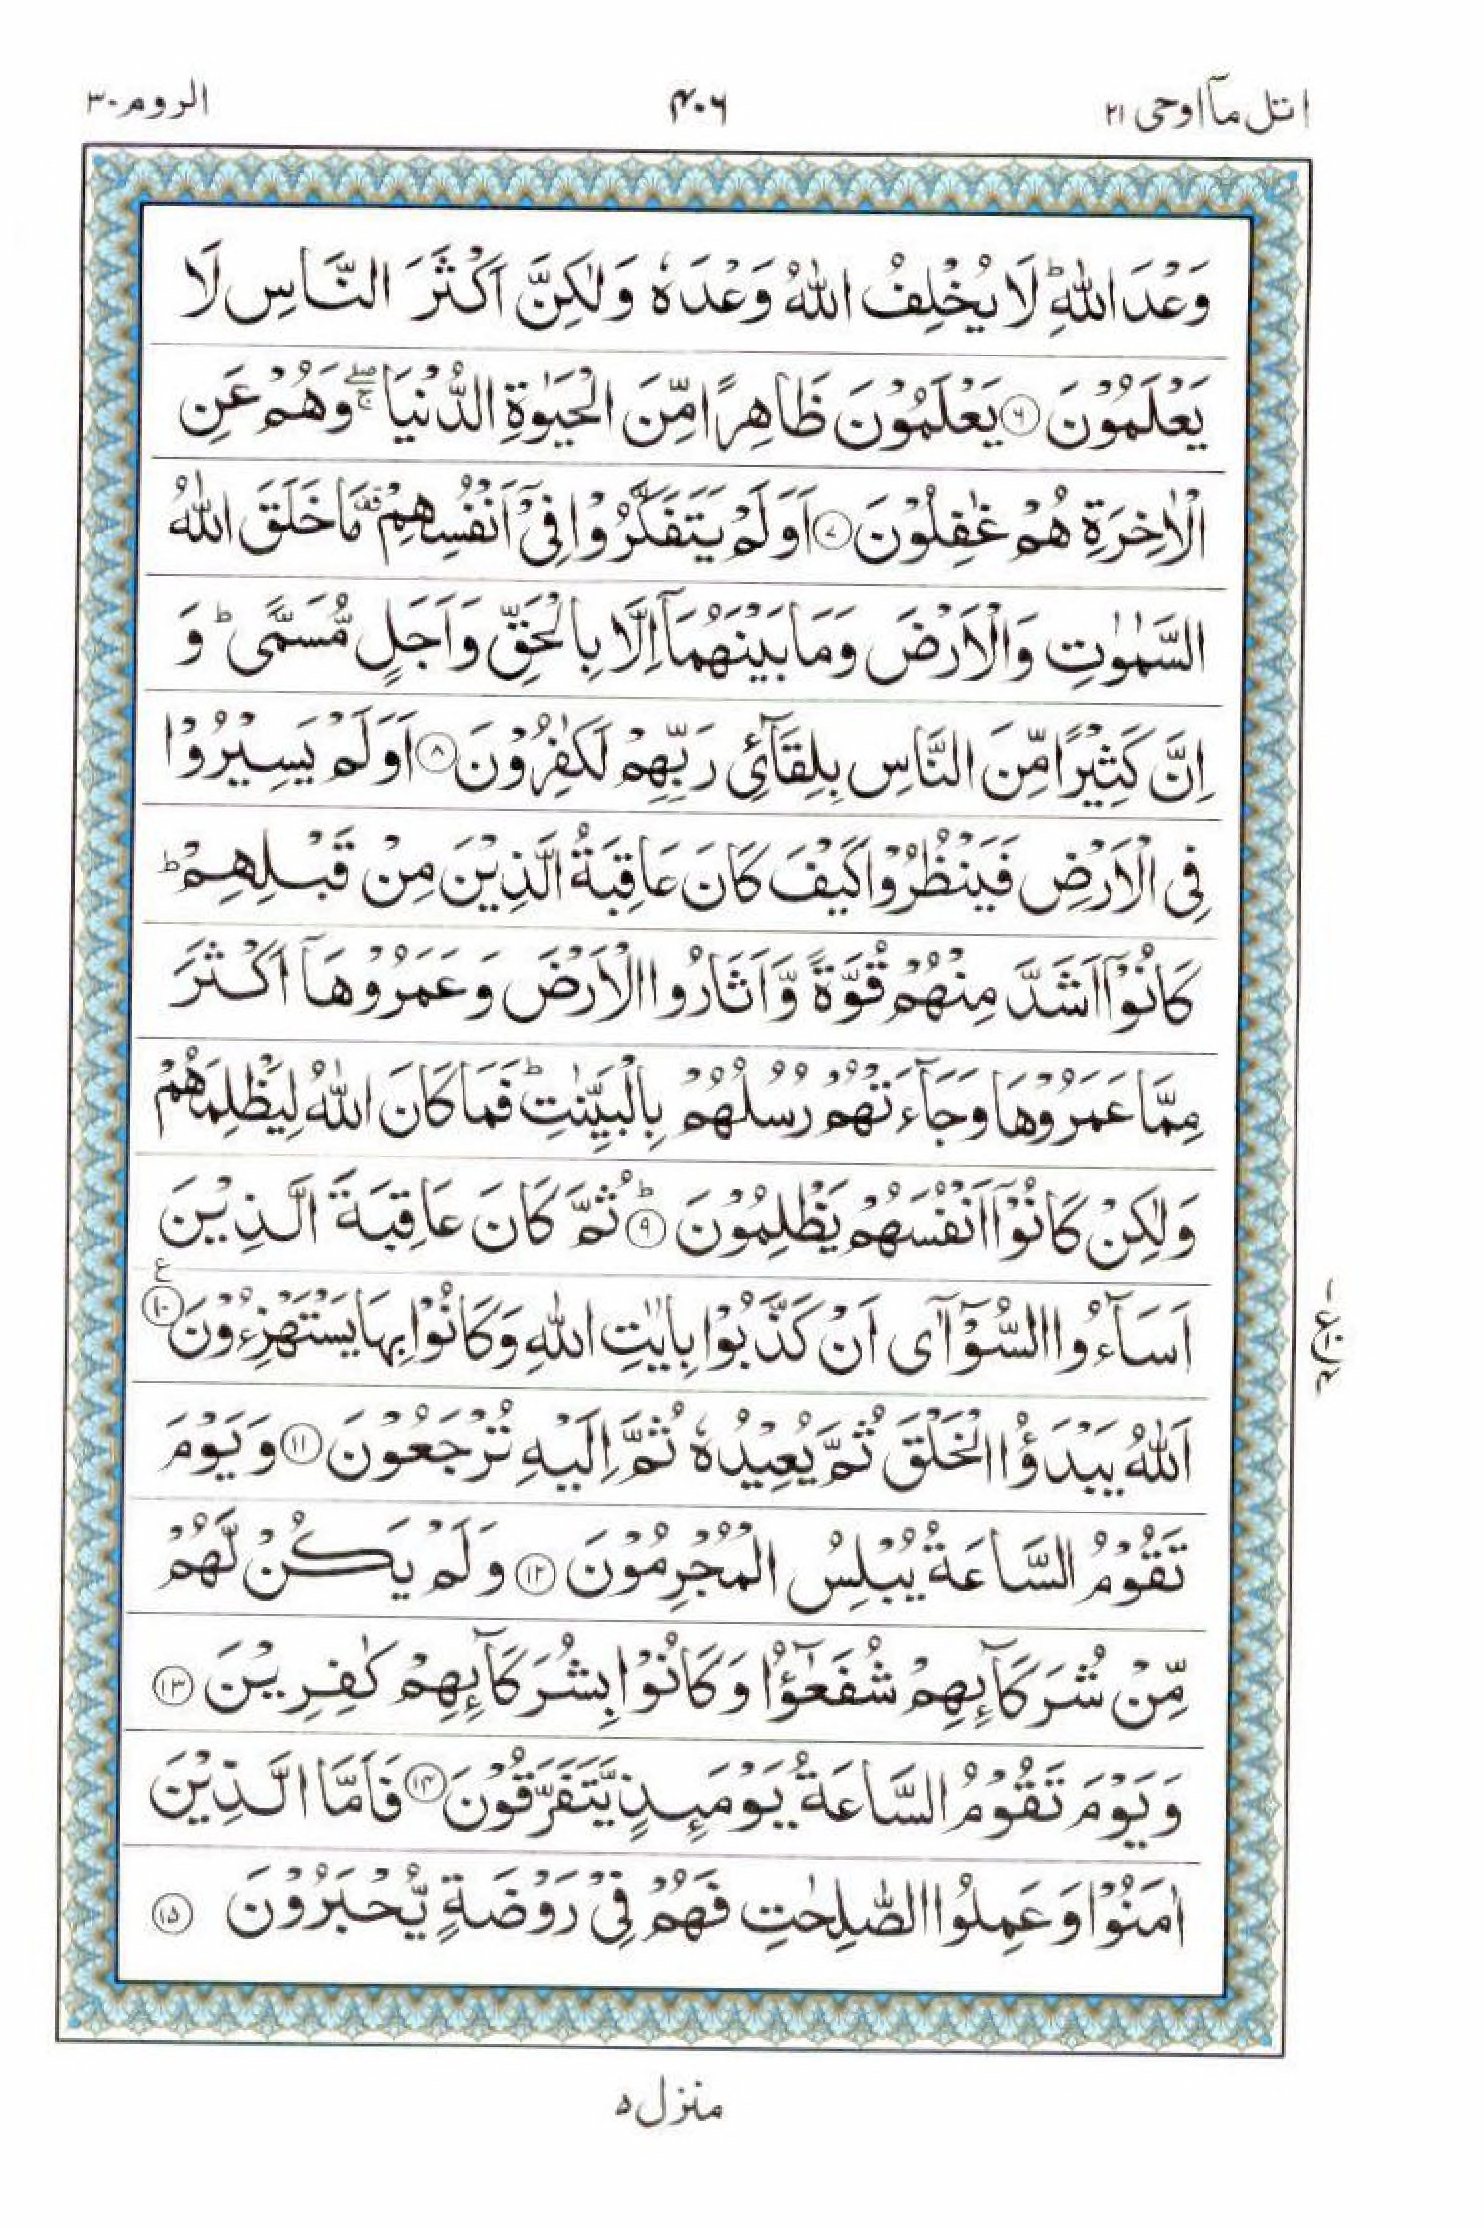 اتل مآاوحی ٢١
۴۰۶
الروم ٣٠
وَعْدَ اللّٰهِ ؕ لَا یُخْلِفُ اللّٰهُ وَعْدَهٗ وَلٰكِنَّ اَكْثَرَ النَّاسِ لَا
یَعْلَمُوْنَ ﴿۶﴾ یَعْلَمُوْنَ ظَاهِرًا مِّنَ الْحَیٰوةِ الدُّنْیَا ۖۚ وَهُمْ عَنِ
الْاٰخِرَةِ هُمْ غٰفِلُوْنَ ﴿۷﴾ اَوَلَمْ یَتَفَكَّرُوْا فِیْۤ اَنْفُسِهِمْ ۫ مَا خَلَقَ اللّٰهُ
السَّمٰوٰتِ وَالْاَرْضَ وَمَا بَیْنَهُمَاۤ اِلَّا بِالْحَقِّ وَاَجَلٍ مُّسَمًّی ؕ وَ
اِنَّ كَثِیْرًا مِّنَ النَّاسِ بِلِقَآئِ رَبِّهِمْ لَكٰفِرُوْنَ ﴿۸﴾ اَوَلَمْ یَسِیْرُوْا
فِی الْاَرْضِ فَیَنْظُرُوْا كَیْفَ كَانَ عَاقِبَةُ الَّذِیْنَ مِنْ قَبْلِهِمْ ؕ
كَانُوْۤا اَشَدَّ مِنْهُمْ قُوَّةً وَّاَثَارُوا الْاَرْضَ وَعَمَرُوْهَاۤ اَكْثَرَ
مِمَّا عَمَرُوْهَا وَجَآءَتْهُمْ رُسُلُهُمْ بِالْبَیِّنٰتِ ؕ فَمَا كَانَ اللّٰهُ لِیَظْلِمَهُمْ
وَلٰكِنْ كَانُوْۤا اَنْفُسَهُمْ یَظْلِمُوْنَ ﴿۹﴾ؕ ثُمَّ كَانَ عَاقِبَةَ الَّذِیْنَ
اَسَآءُوا السُّوْٓاٰۤی اَنْ كَذَّبُوْا بِاٰیٰتِ اللّٰهِ وَكَانُوْا بِهَا یَسْتَهْزِءُوْنَ ﴿۱۰﴾ ع
اَللّٰهُ یَبْدَؤُا الْخَلْقَ ثُمَّ یُعِیْدُهٗ ثُمَّ اِلَیْهِ تُرْجَعُوْنَ ﴿۱۱﴾ وَیَوْمَ
تَقُوْمُ السَّاعَةُ یُبْلِسُ الْمُجْرِمُوْنَ ﴿۱۲﴾ وَلَمْ یَكُنْ لَّهُمْ
مِّنْ شُرَكَآىِٕهِمْ شُفَعٰٓؤُا وَكَانُوْا بِشُرَكَآىِٕهِمْ كٰفِرِیْنَ ﴿۱۳﴾
وَیَوْمَ تَقُوْمُ السَّاعَةُ یَوْمَىِٕذٍ یَّتَفَرَّقُوْنَ ﴿۱۴﴾ فَاَمَّا الَّذِیْنَ
اٰمَنُوْا وَعَمِلُوا الصّٰلِحٰتِ فَهُمْ فِیْ رَوْضَةٍ یُّحْبَرُوْنَ ﴿۱۵﴾
منزل ۵